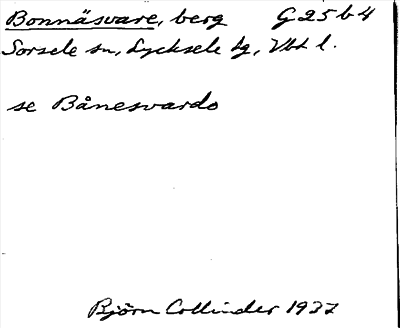 Bonnäsvare, berg G 25 b 4
Sorsele sn, Lycksele lg, Vbt l.
se Bånesvardo
Björn Collinder 1937